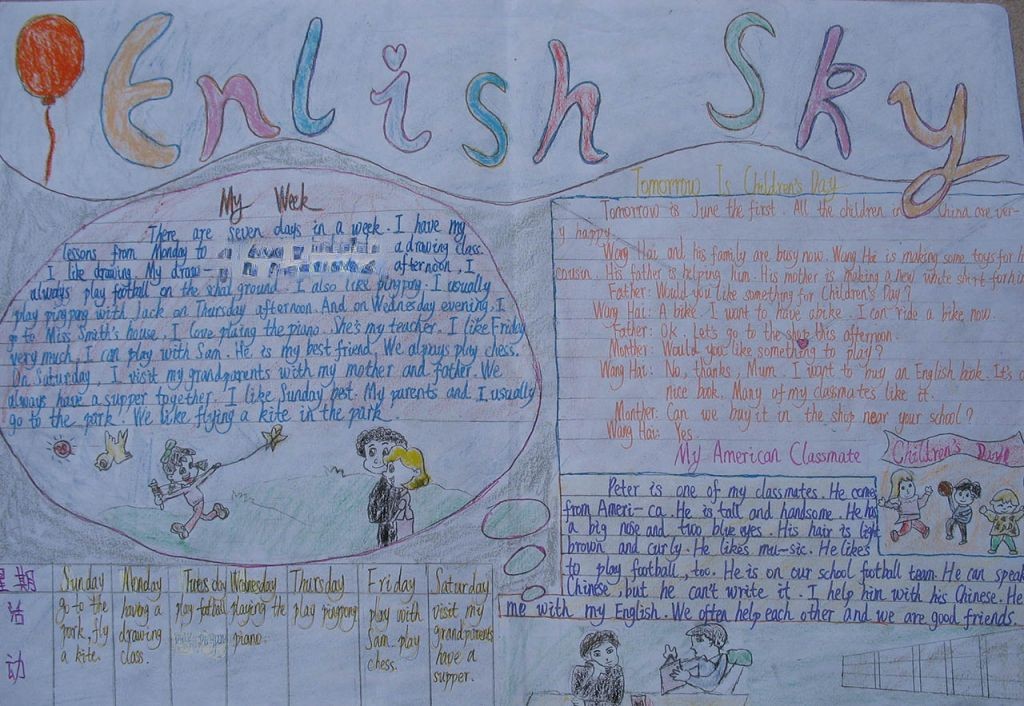 Enlish Sky
My Week
There are seven days in a week. I have my
lessons from Monday to a drawing class.
I like drawing. My draw- afternoon, I
always play football on the schal ground. I also like pingpong. I usually
play pingpong with Jack on Thursday afternoon. And on Wednesday evening, I
go to Miss Smith's house, I love plaing the piano. She's my teacher. I like Friday
very much, I can play with Sam. He is my best friend, We always play chess.
On Saturday, I visit my grandparents with my mother and father. We
always have a supper together. I like Sunday best. My parents and I usually
go to the park. We like flying a kite in the park.
星期 Sunday Monday Tuesday Wednesday Thursday Friday Saturday
活动
go to the park, fly a kite.
having a drawing class.
play football
playing the piano.
play pingpong
play with Sam. play chess.
visit my grandparents have a supper.
Tomorrow Is Children's Day
Tomorrow is June the first. All the children in China are ver-
y happy.
Wang Hai and his family are busy now. Wang Hai is making some toys for h
cousin. His father is helping him. His mother is making a new white shirt for him
Father: Would you like something for Children's Day?
Wang Hai: A bike. I want to have a bike. I can ride a bike now.
Father: Ok. Let's go to the shop this afternoon.
Monther: Would you like something to play?
Wang Hai: No, thanks, Mum. I want to buy an English book. It's a
nice book. Many of my classmates like it.
Monther: Can we buy it in the shop near your school?
Wang Hai: Yes.
My American Classmate
Children's Day
Peter is one of my classmates. He comes
from Ameri-ca. He is tall and handsome. He has
a big nose and two blue eyes. His hair is light
brown and curly. He likes mu-sic. He likes
to play football, too. He is on our school football team. He can speak
Chinese, but he can't write it. I help him with his Chinese. He
me with my English. We often help each other and we are good friends.